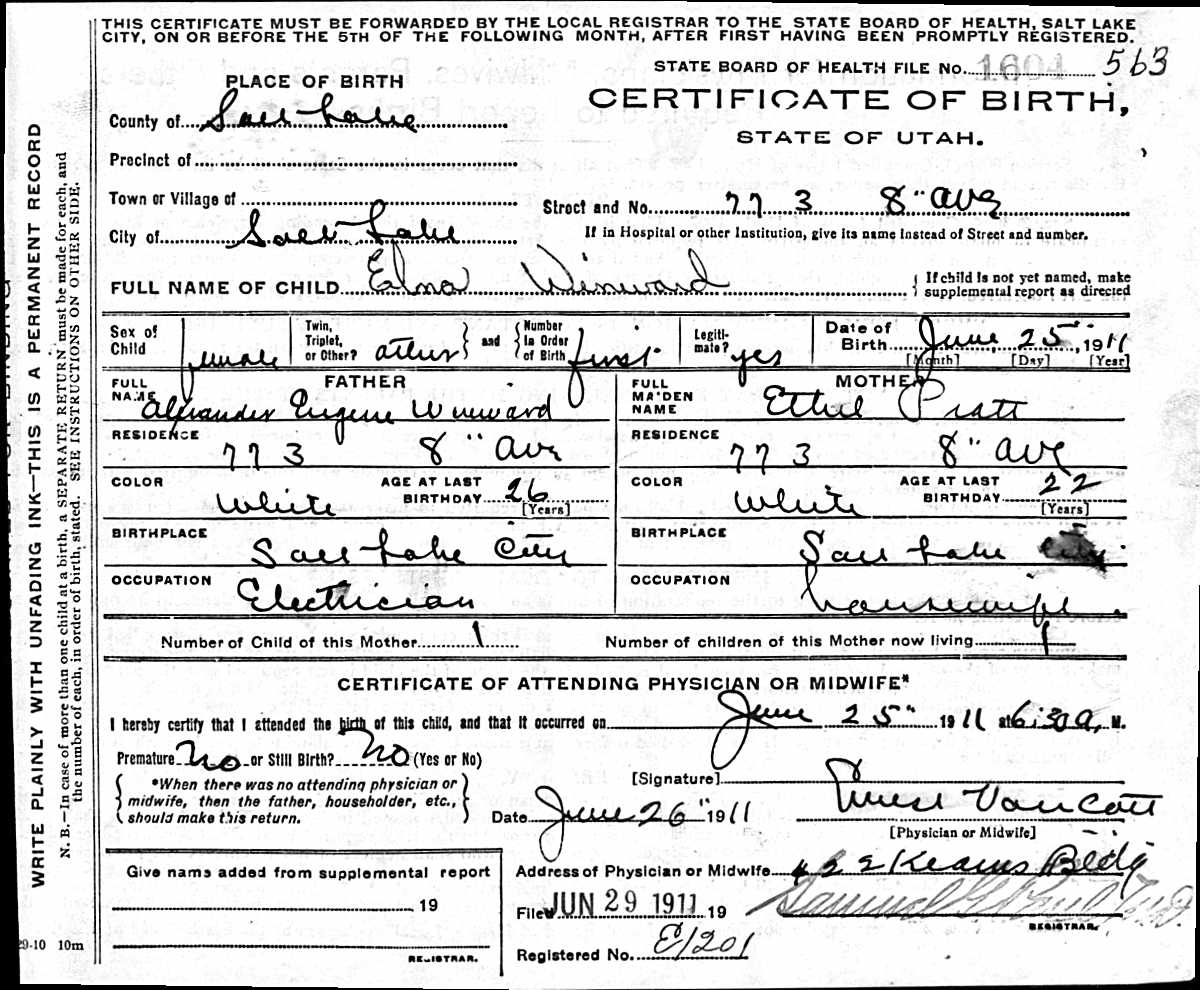 THIS CERTIFICATE MUST BE FORWARDED BY THE LOCAL REGISTRAR TO THE STATE BOARD OF HEALTH, SALT LAKE
CITY, ON OR BEFORE THE 5TH OF THE FOLLOWING MONTH, AFTER FIRST HAVING BEEN PROMPTLY REGISTERED.
WRITE PLAINLY WITH UNFADING INK—THIS IS A PERMANENT RECORD
N. B.—In case of more than one child at a birth, a SEPARATE RETURN must be made for each, and
the number of each, in order of birth, stated. SEE INSTRUCTIONS ON OTHER SIDE.
STATE BOARD OF HEALTH FILE No. 1604 563
PLACE OF BIRTH
CERTIFICATE OF BIRTH,
STATE OF UTAH.
County of Salt Lake
Precinct of
Town or Village of
Street and No. 773 8" Ave
City of Salt Lake
If in Hospital or other Institution, give its name instead of Street and number.
FULL NAME OF CHILD Elna Winward
If child is not yet named, make
supplemental report as directed
Sex of Child female
Twin, Triplet, or Other? other and Number in Order of Birth first
Legitimate? yes
Date of Birth June 25", 1911
[Month] [Day] [Year]
FATHER
FULL NAME Alexander Eugene Winward
RESIDENCE 773 8" Ave
COLOR White AGE AT LAST BIRTHDAY 26
[Years]
BIRTHPLACE Salt Lake City
OCCUPATION Electrician
MOTHER
FULL MAIDEN NAME Ethel Pratt
RESIDENCE 773 8" Ave
COLOR White AGE AT LAST BIRTHDAY 22
[Years]
BIRTHPLACE Salt Lake City
OCCUPATION housewife.
Number of Child of this Mother 1 Number of children of this Mother now living 1
CERTIFICATE OF ATTENDING PHYSICIAN OR MIDWIFE*
I hereby certify that I attended the birth of this child, and that it occurred on June 25" 1911 at 6:30 a. M.
Premature No or Still Birth? No (Yes or No)
*When there was no attending physician or
midwife, then the father, householder, etc.,
should make this return.
[Signature] Van Cott
Date June 26" 1911
[Physician or Midwife]
Address of Physician or Midwife 422 Kearns Bldg
Give name added from supplemental report
19
REGISTRAR.
Filed JUN 29 1911 19
Samuel G. Paul M.D.
REGISTRAR.
Registered No. E1201
29-10 10m